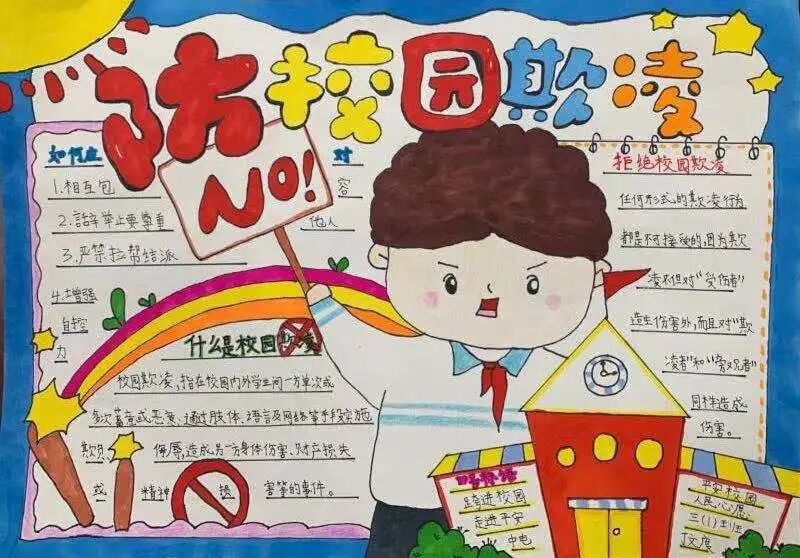 防校园欺凌
NO!
如何应对
1.相互包容
2.言辞举止要尊重他人
3.严禁拉帮结派
4.增强自控力
什么是校园欺凌
校园欺凌,指在校园内外学生间一方单次或
多次蓄意或恶意、通过肢体、语言及网络等手段实施
欺负、侮辱,造成另一方身体伤害、财产损失
或精神损害等的事件。
拒绝校园欺凌
任何形式的欺凌行为
都是不可接受的,因为欺
凌不但对“受伤者”
造成伤害外,而且对“欺
凌者”和“旁观者”
同样造成
伤害。
走进校园
走进平安
平安校园
人民心愿
三(1)班